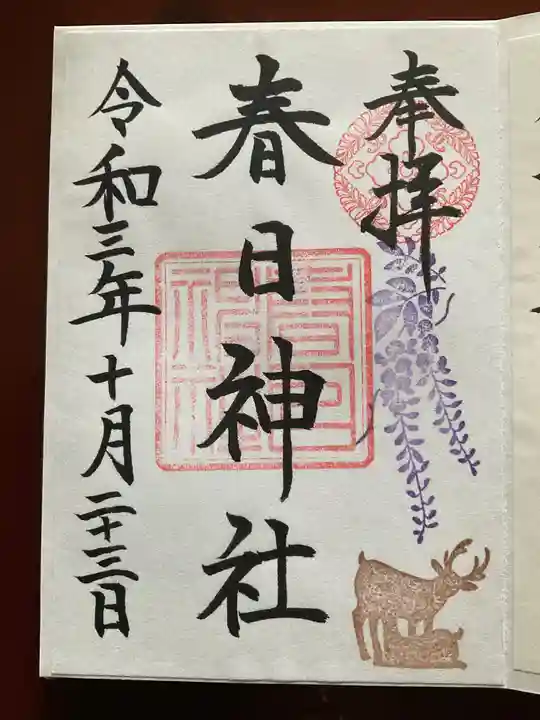 奉拝
春日神社
春日
神社
令和三年十月二十三日